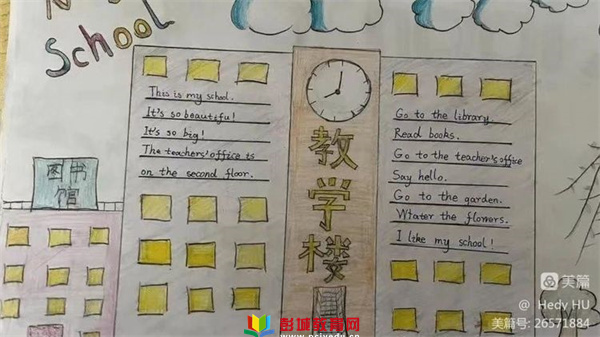 School
This is my school.
It's so beautiful!
It's so big!
The teachers' office is
on the second floor.
教学楼
Go to the library.
Read books.
Go to the teacher's office
Say hello.
Go to the garden.
the flowers.
I like my school!
图书
馆
彭城教育网
美篇
@ Hedy HU
美篇号: 26571884